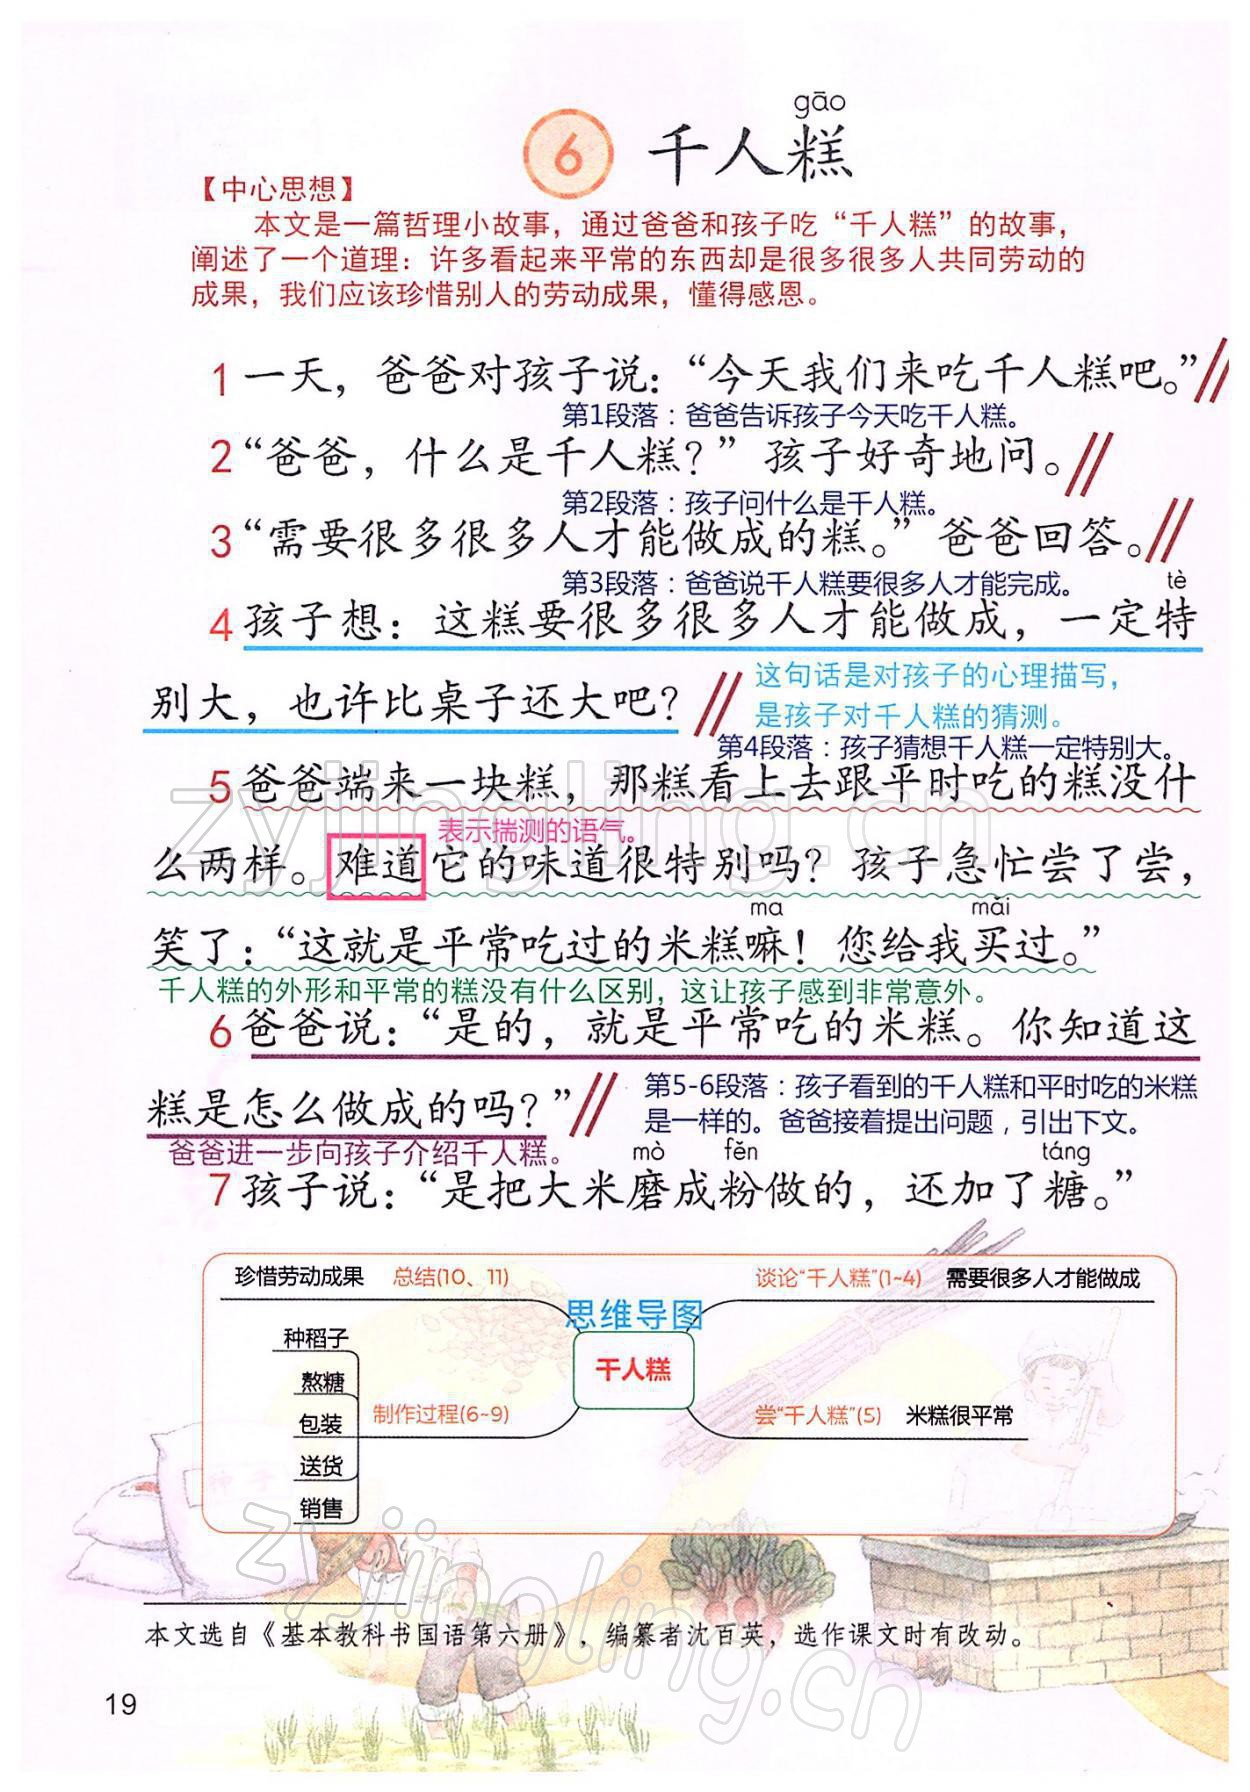 gāo
6 千人糕
【中心思想】
本文是一篇哲理小故事，通过爸爸和孩子吃“千人糕”的故事，
阐述了一个道理：许多看起来平常的东西却是很多很多人共同劳动的
成果，我们应该珍惜别人的劳动成果，懂得感恩。
1 一天，爸爸对孩子说：“今天我们来吃千人糕吧。”
第1段落：爸爸告诉孩子今天吃千人糕。
2 “爸爸，什么是千人糕？”孩子好奇地问。
第2段落：孩子问什么是千人糕。
3 “需要很多很多人才能做成的糕。”爸爸回答。
第3段落：爸爸说千人糕要很多人才能完成。
tè
4 孩子想：这糕要很多很多人才能做成，一定特
别大，也许比桌子还大吧？
这句话是对孩子的心理描写，
是孩子对千人糕的猜测。
第4段落：孩子猜想千人糕一定特别大。
5 爸爸端来一块糕，那糕看上去跟平时吃的糕没什
表示揣测的语气。
么两样。难道它的味道很特别吗？孩子急忙尝了尝，
ma mǎi
笑了：“这就是平常吃过的米糕嘛！您给我买过。”
千人糕的外形和平常的糕没有什么区别，这让孩子感到非常意外。
6 爸爸说：“是的，就是平常吃的米糕。你知道这
糕是怎么做成的吗？”
第5-6段落：孩子看到的千人糕和平时吃的米糕
是一样的。爸爸接着提出问题，引出下文。
爸爸进一步向孩子介绍千人糕。
mò fěn táng
7 孩子说：“是把大米磨成粉做的，还加了糖。”
思维导图
千人糕
谈论“千人糕”(1~4) 需要很多人才能做成
尝“千人糕”(5) 米糕很平常
制作过程(6~9)
种稻子
熬糖
包装
送货
销售
珍惜劳动成果 总结(10、11)
种子
本文选自《基本教科书国语第六册》，编纂者沈百英，选作课文时有改动。
19
zyjingling.cn
zyjingling.cn